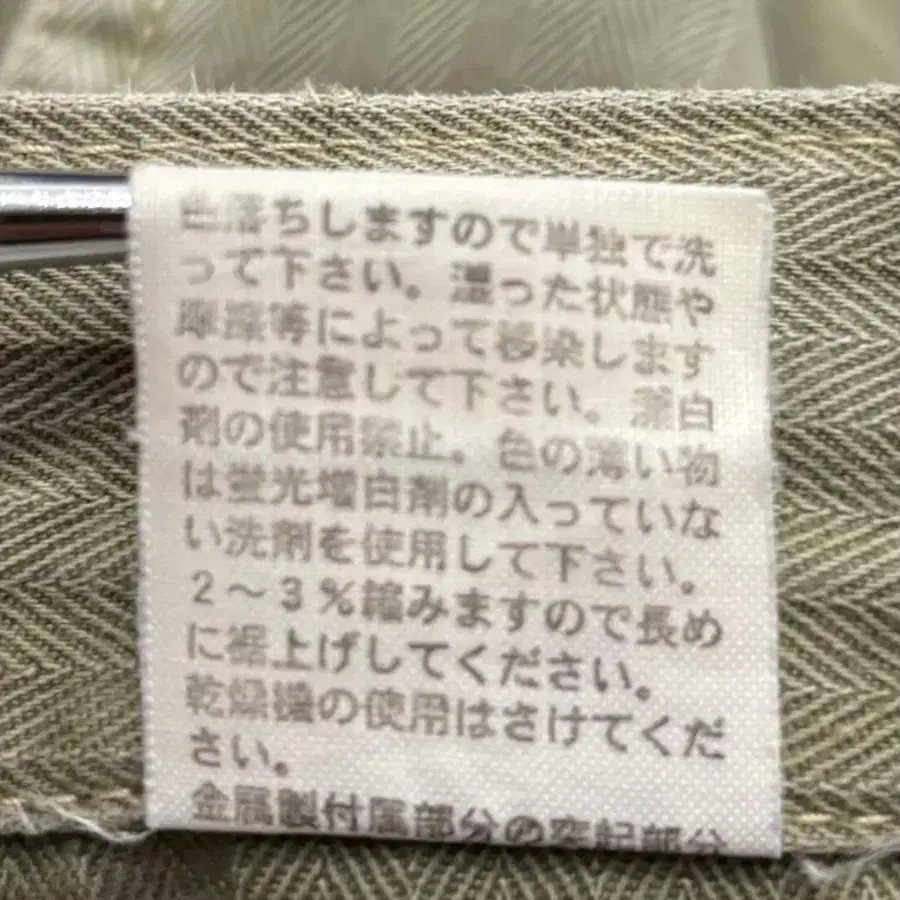 色落ちしますので単独で洗
って下さい。湿った状態や
摩擦等によって移染します
ので注意して下さい。漂白
剤の使用禁止。色の薄い物
は蛍光増白剤の入っていな
い洗剤を使用して下さい。
2～3%縮みますので長め
に裾上げしてください。
乾燥機の使用はさけてくだ
さい。
金属製付属部分の突起部分